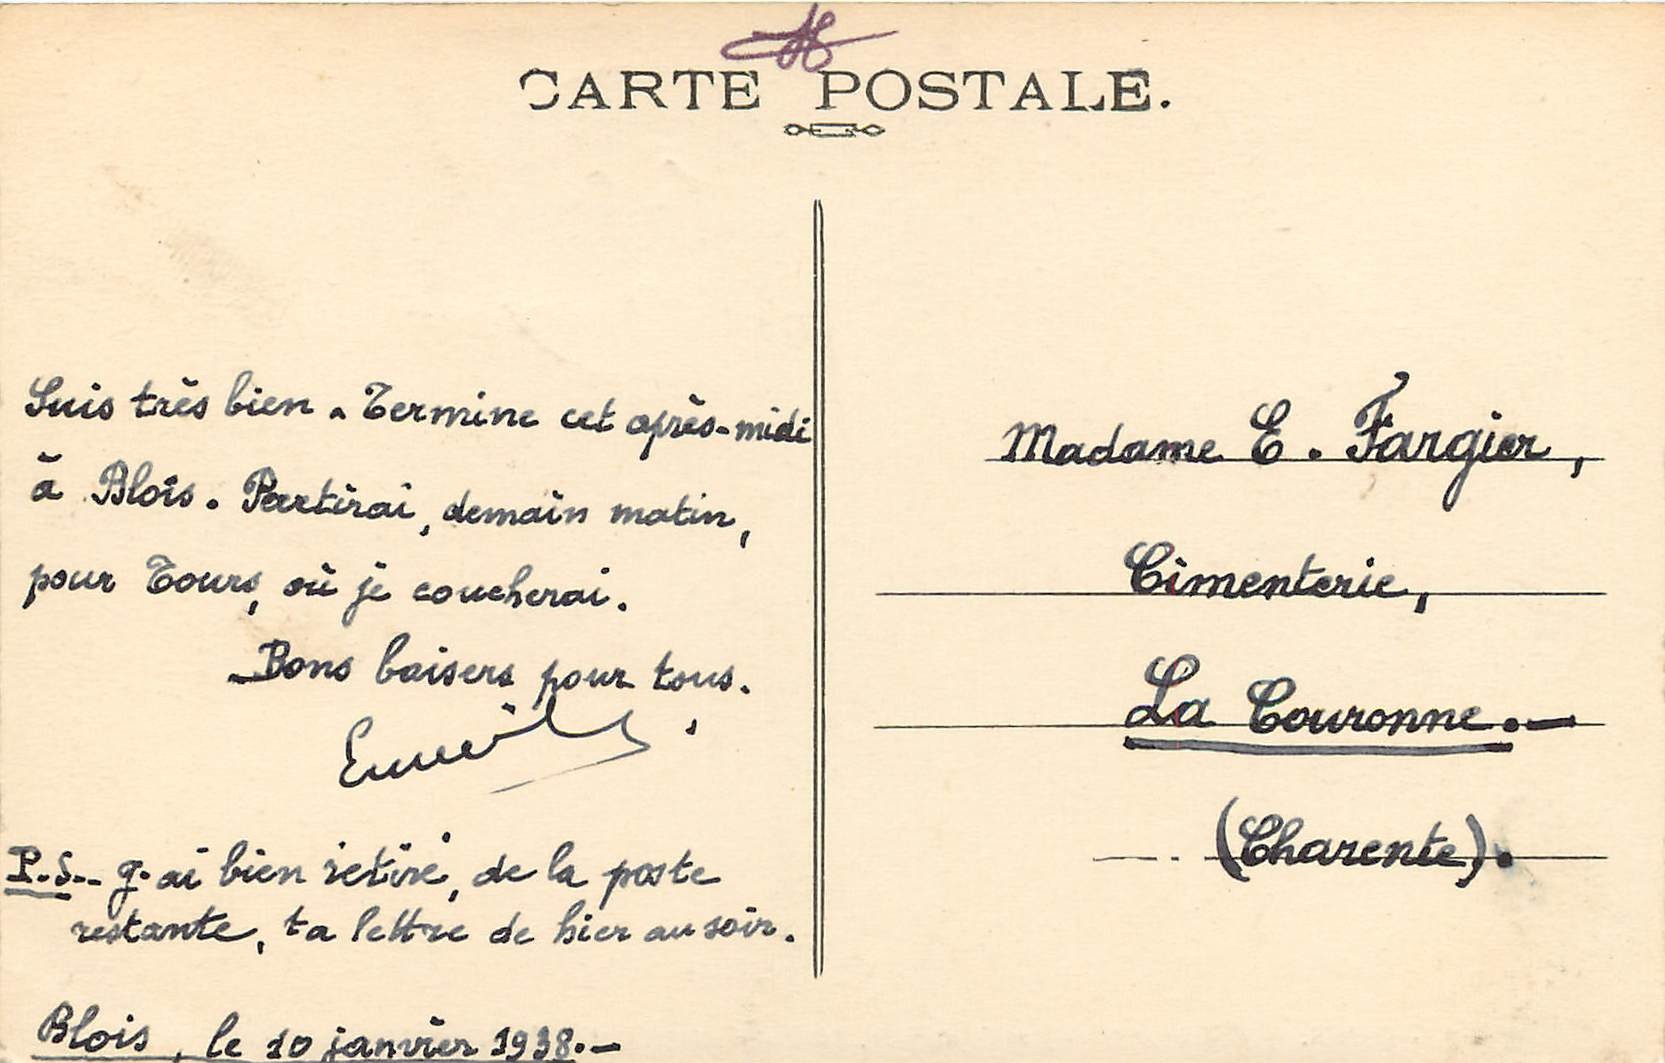 CARTE POSTALE.
Suis très bien. Termine cet après-midi
à Blois. Partirai, demain matin,
pour Tours, où je coucherai.
Bons baisers pour tous.
P.S.- J'ai bien retiré, de la poste
restante, ta lettre de hier au soir.
Blois, le 10 janvier 1938.-
Madame E. Fargier,
Cimenterie,
La Couronne.-
(Charente).